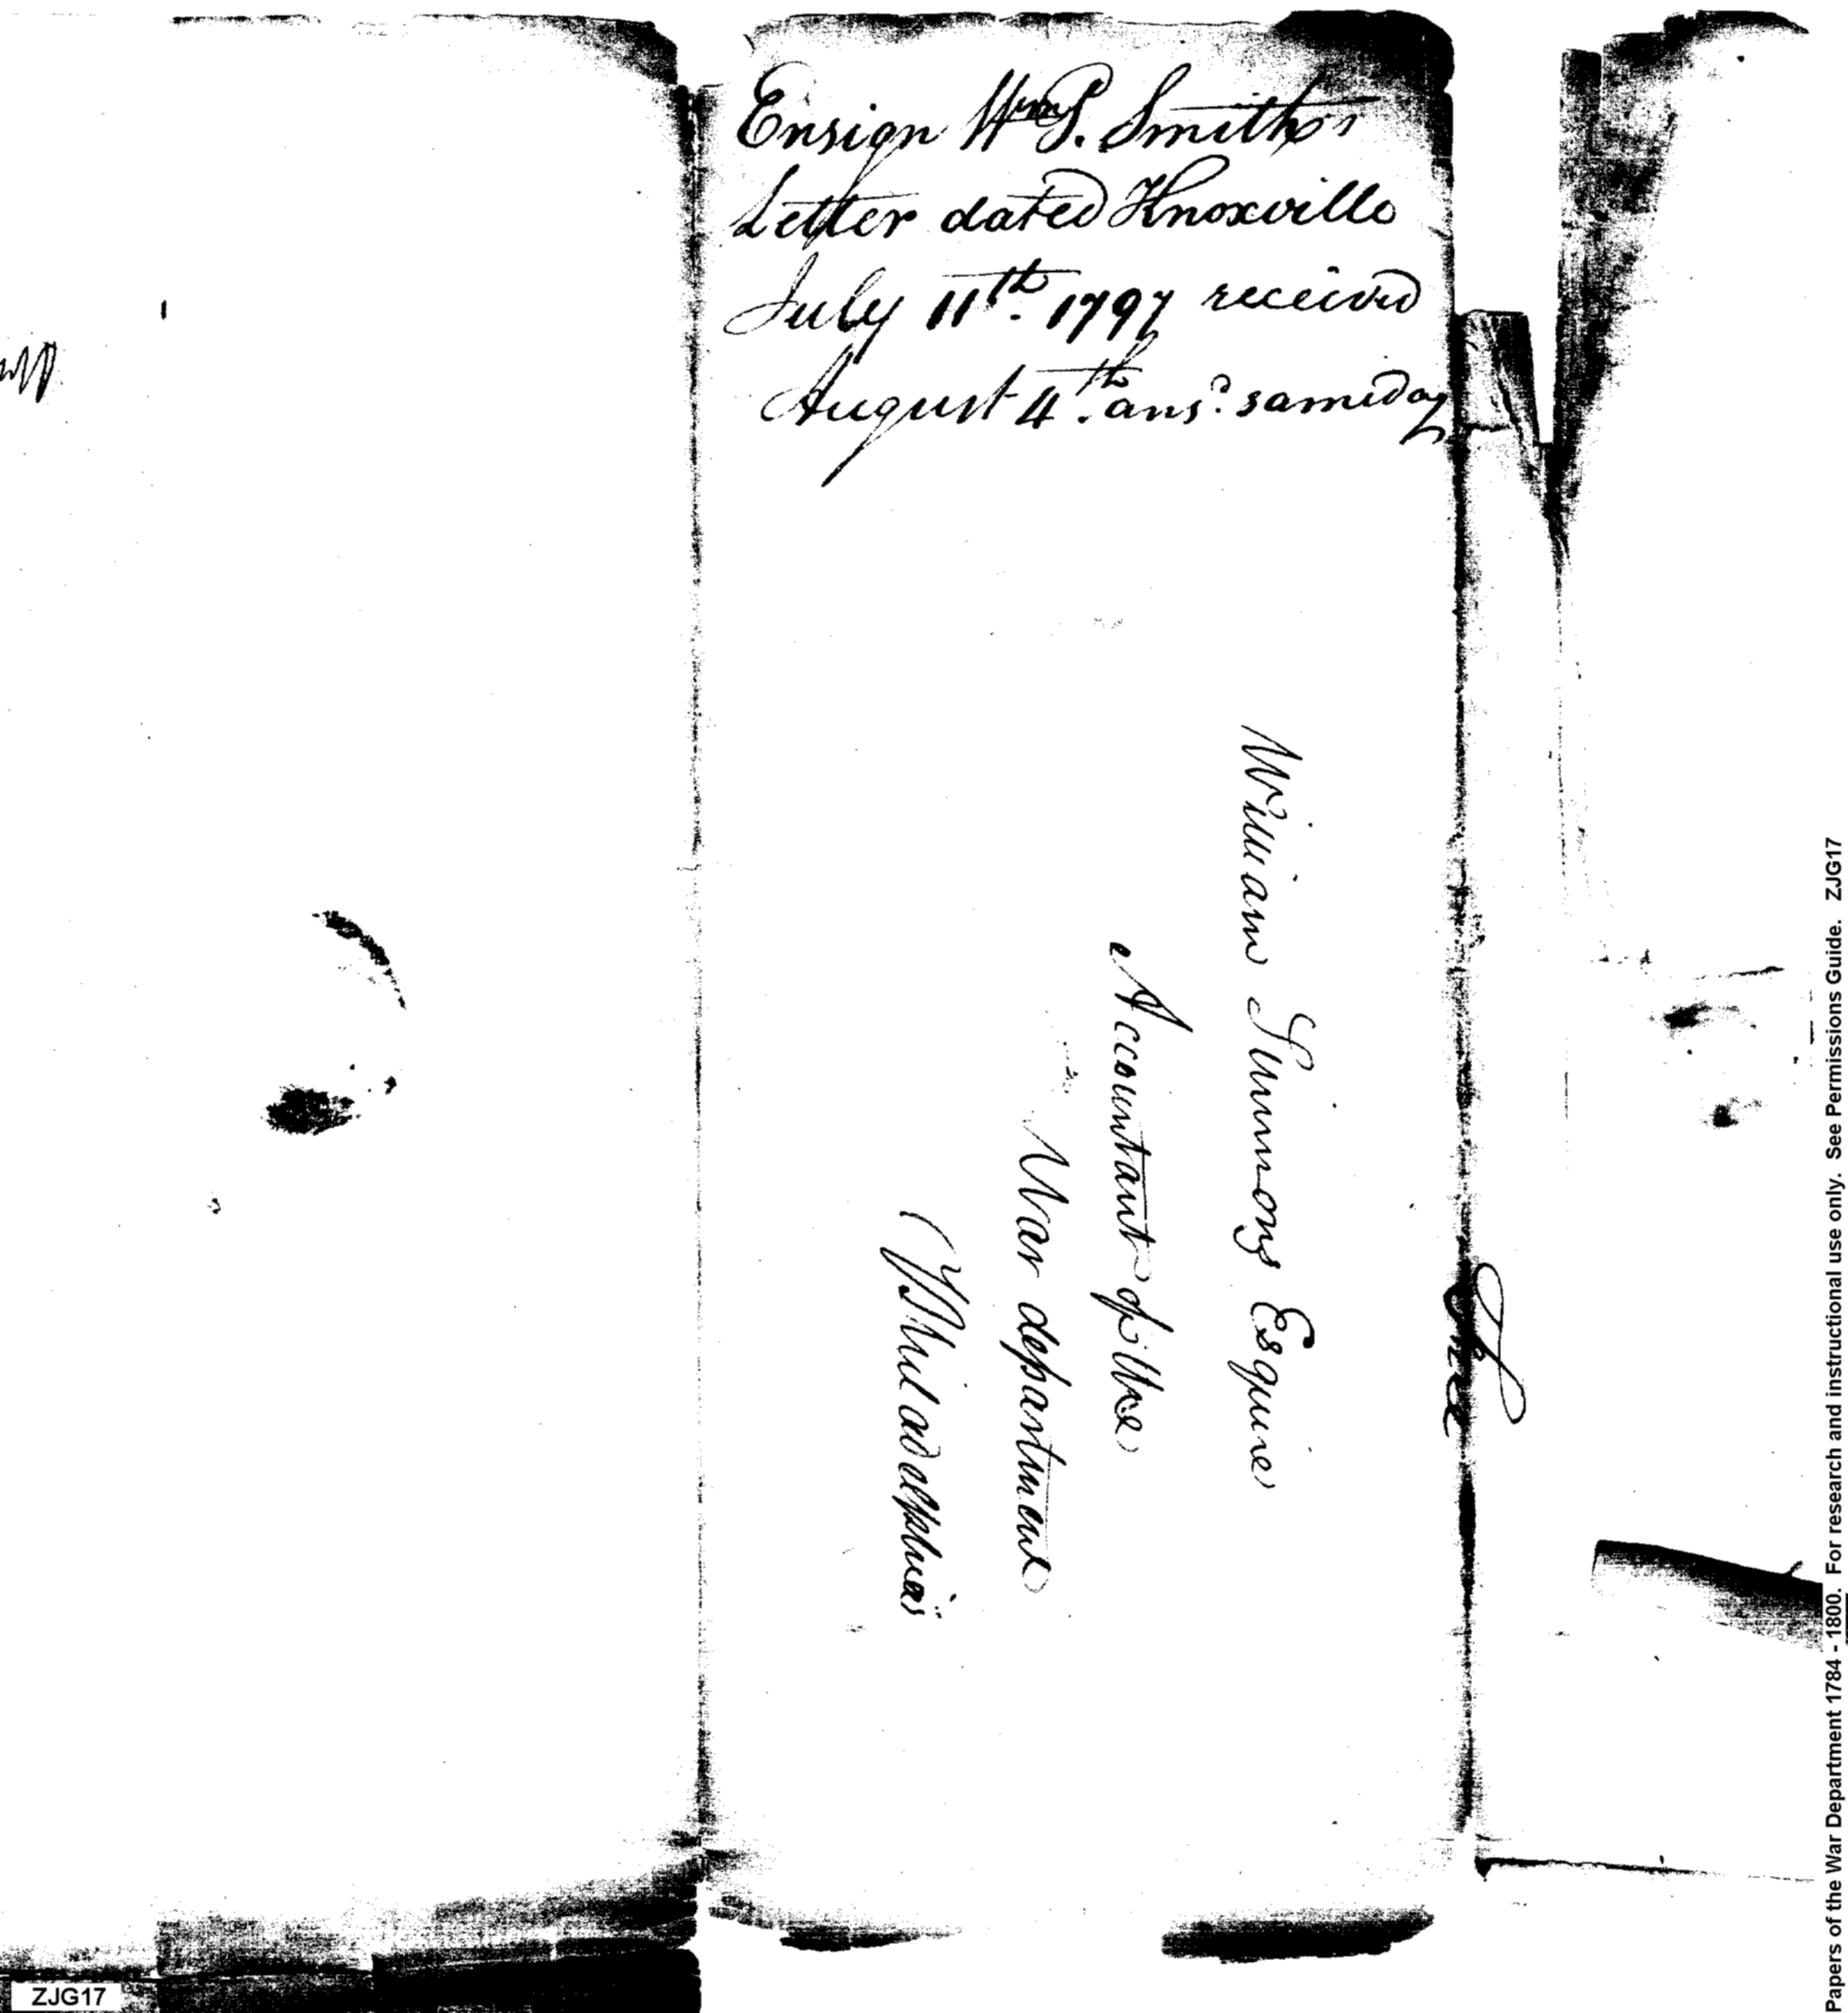 Ensign Wm P. Smith's
Letter dated Knoxville
July 11th. 1797 received
August 4th. ansd. same day
William Simmons Esquire
Accountant of the
War department
Philadelphia
Papers of the War Department 1784 - 1800. For research and instructional use only. See Permissions Guide. ZJG17
ZJG17